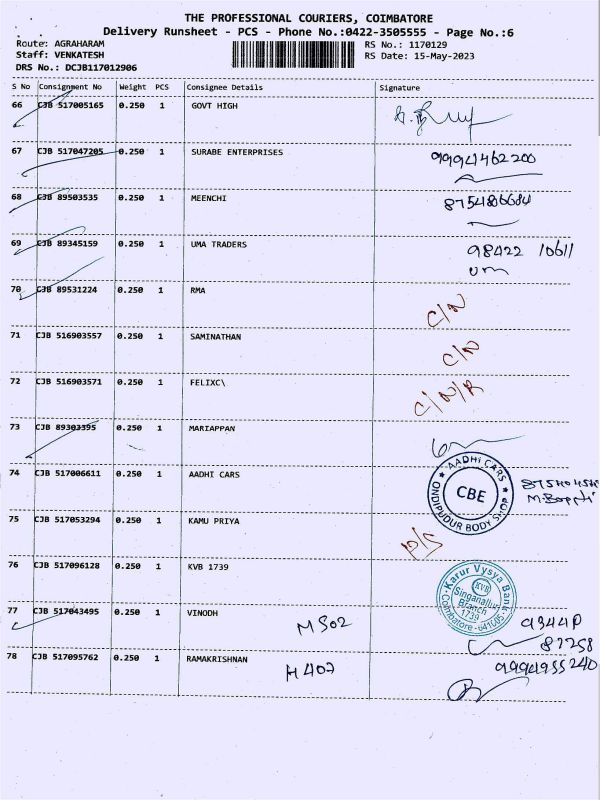 THE PROFESSIONAL COURIERS, COIMBATORE
Delivery Runsheet - PCS - Phone No.:0422-3505555 - Page No.:6
Route: AGRAHARAM RS No.: 1170129
Staff: VENKATESH RS Date: 15-May-2023
DRS No.: DCJB117012906
S No Consignment No Weight PCS Consignee Details Signature
66 CJB 517005165 0.250 1 GOVT HIGH
67 CJB 517047205 0.250 1 SURABE ENTERPRISES 99941462200
68 CJB 89503535 0.250 1 MEENCHI
69 CJB 89345159 0.250 1 UMA TRADERS 98422 10611
um
70 CJB 89531224 0.250 1 RMA C/N
71 CJB 516903557 0.250 1 SAMINATHAN C/N
72 CJB 516903571 0.250 1 FELIXC\ C/N/R
73 CJB 89303395 0.250 1 MARIAPPAN
74 CJB 517006611 0.250 1 AADHI CARS
AADHI CARS
CBE
ONDIPUDUR BODY SHOP
75 CJB 517053294 0.250 1 KAMU PRIYA D/S
76 CJB 517096128 0.250 1 KVB 1739
Karur Vysya Bank
KVB
Singanallur
Branch
1739
Coimbatore-641005
77 CJB 517043495 0.250 1 VINODH M502
87258
78 CJB 517095762 0.250 1 RAMAKRISHNAN H407 9994955240